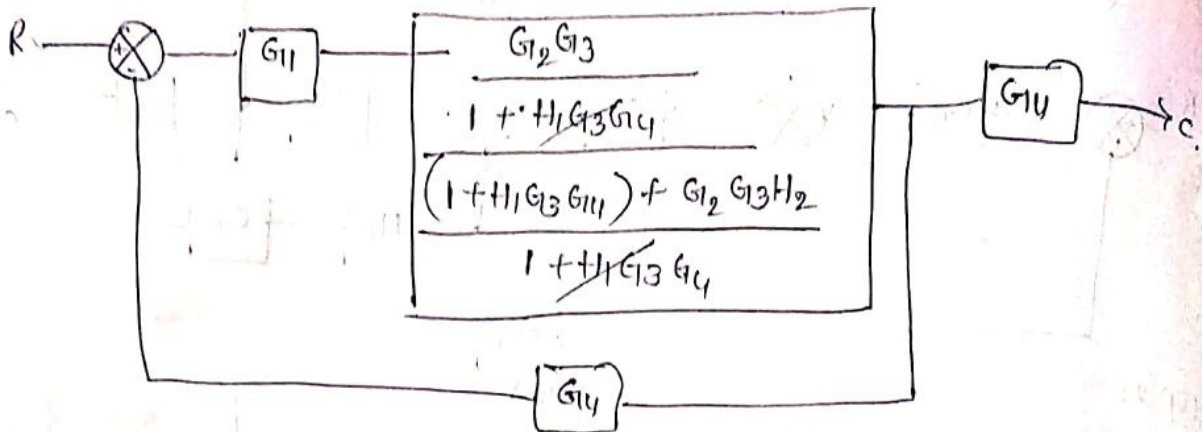 R + - G1 G2G3 G4 C
1 + H1G3G4
(1 + H1G3G4) + G2G3H2
1 + H1G3G4
G4